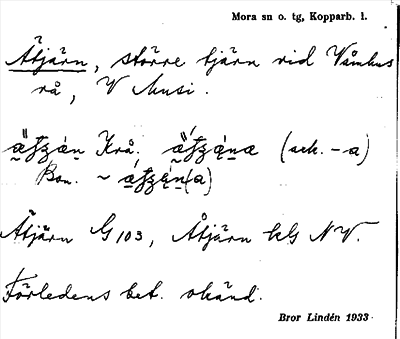 Mora sn o. tg, Kopparb. l.
Ätjärn, större tjärn vid Våmhus
rå, V Musi.
Krå. (ack. -a)
Bon. ~
Ätjärn G 103, Åtjärn kG NV.
Förledens bet. okänd.
Bror Lindén 1933